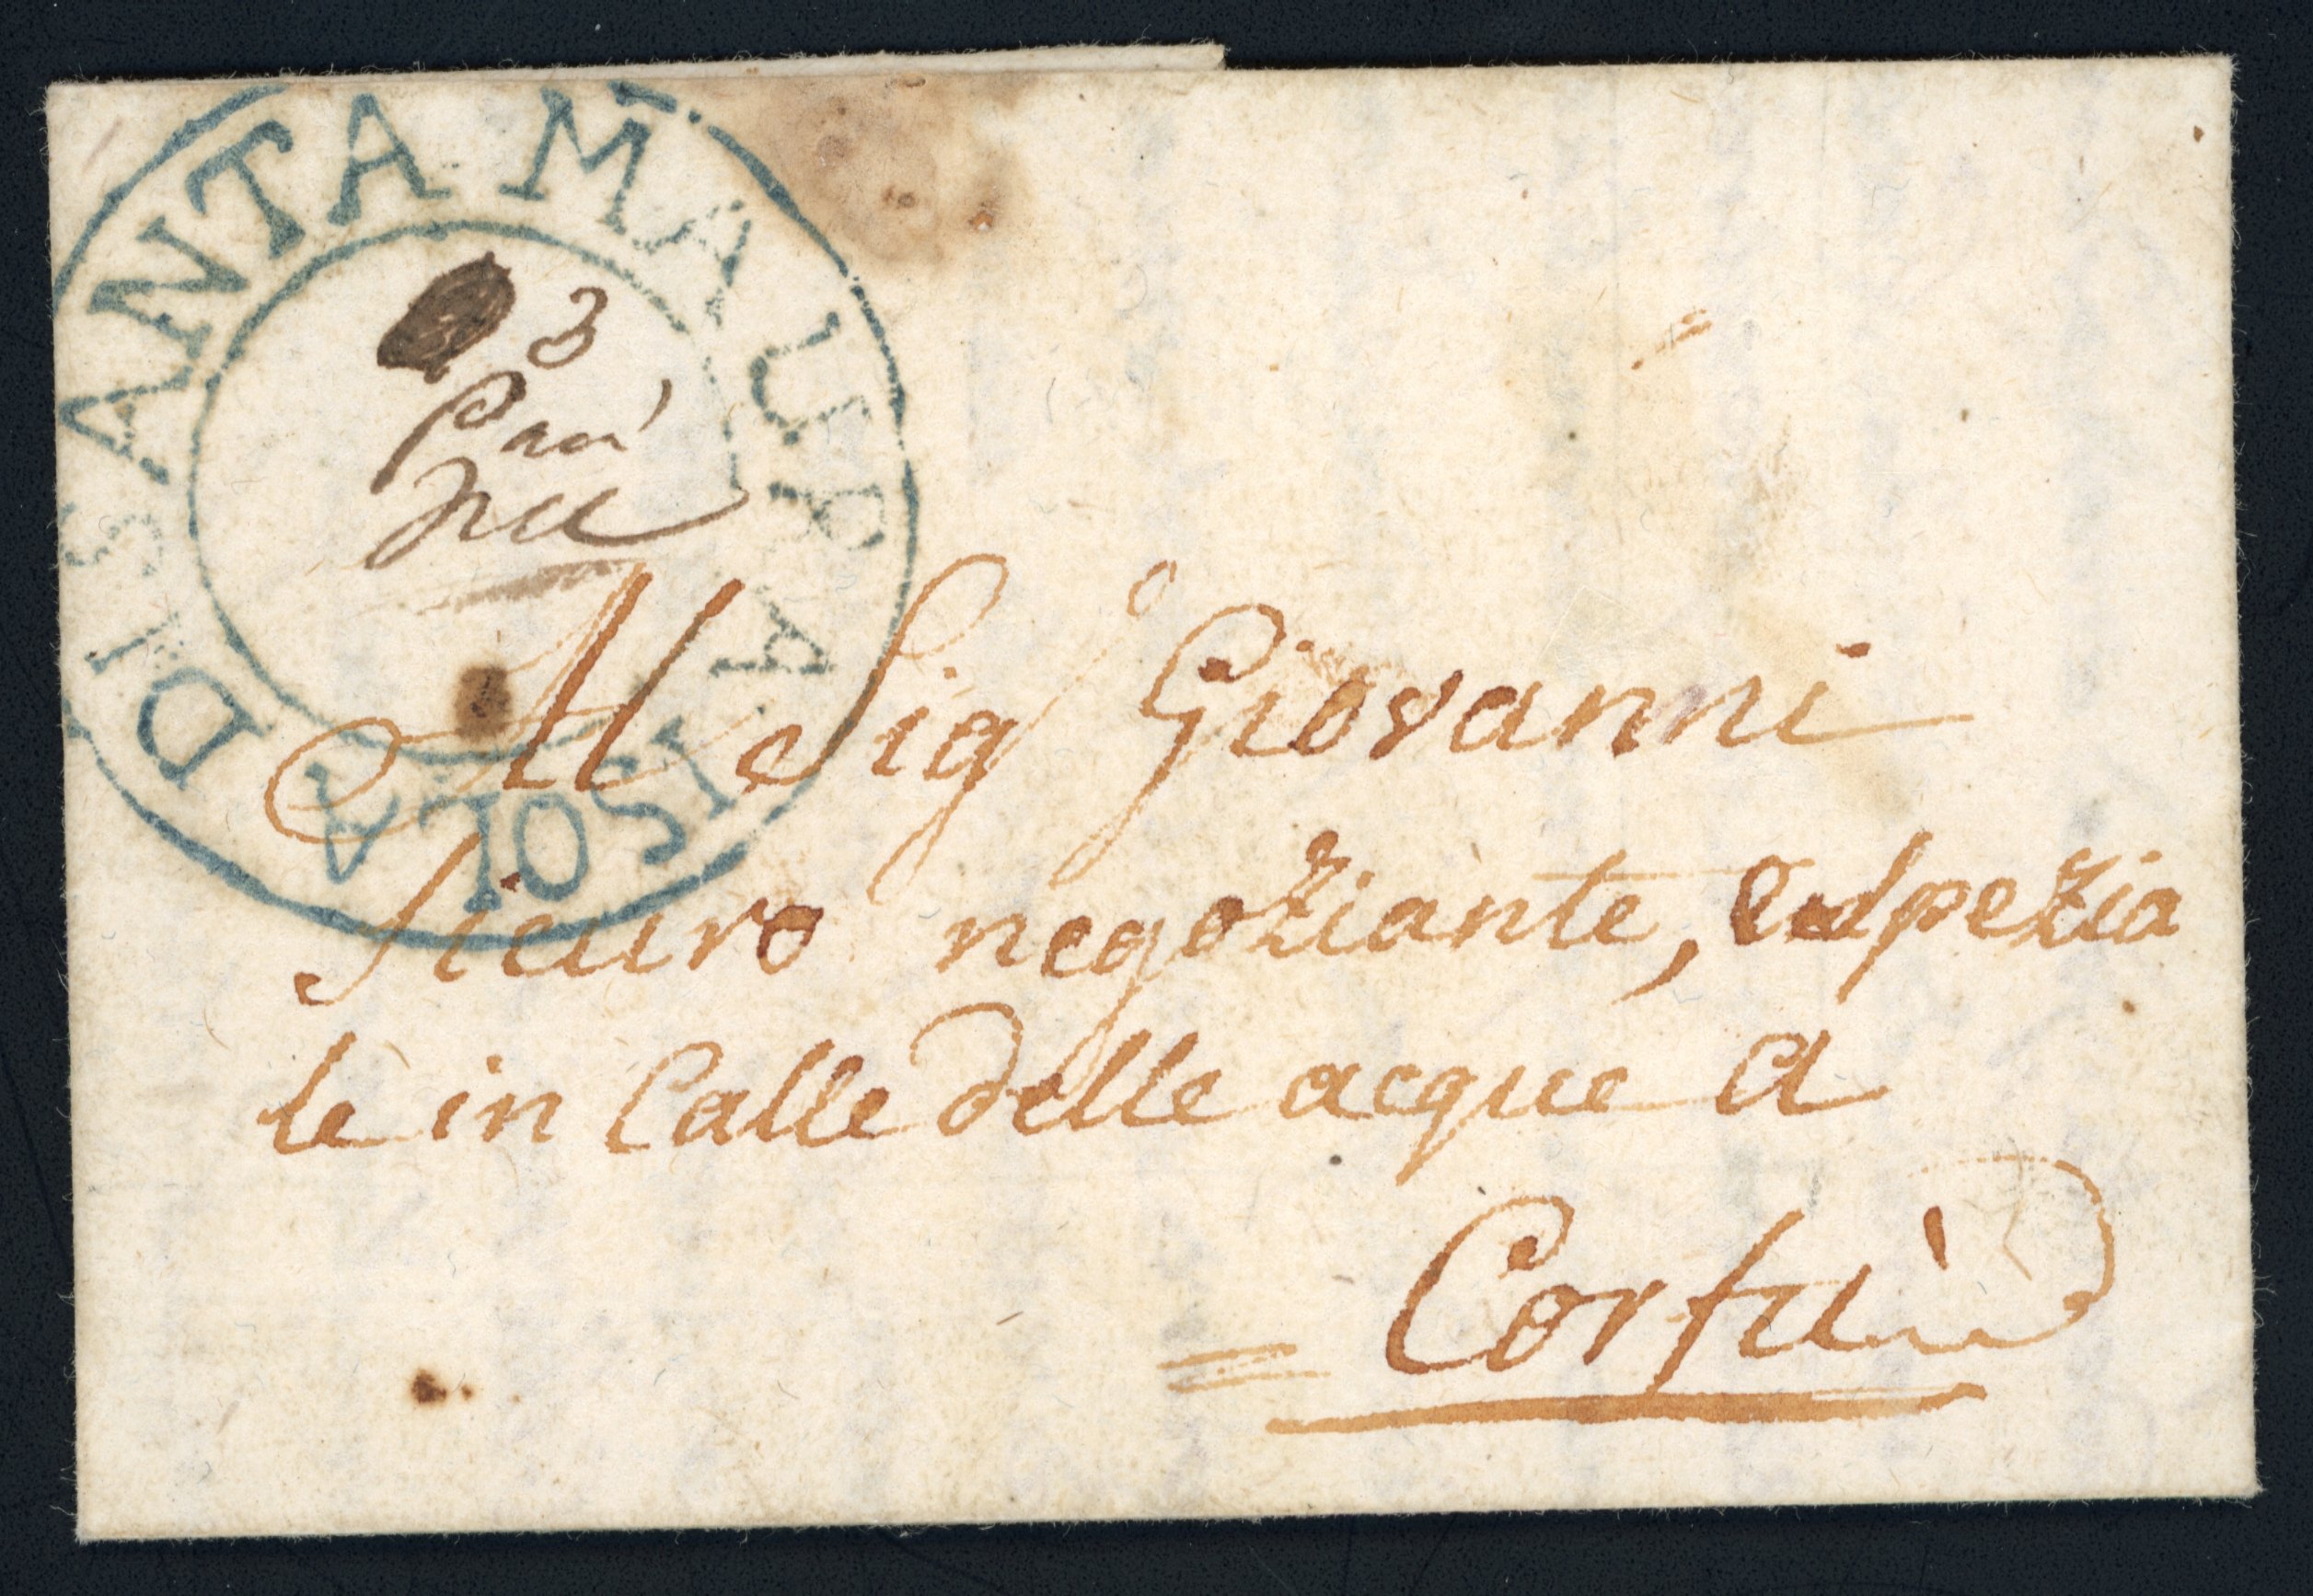 ISOLA DI SANTA MAURA
3
Al Sigʳ Giovanni
Sicuro negoziante, e spezia
le in Calle delle acque a
= Corfù